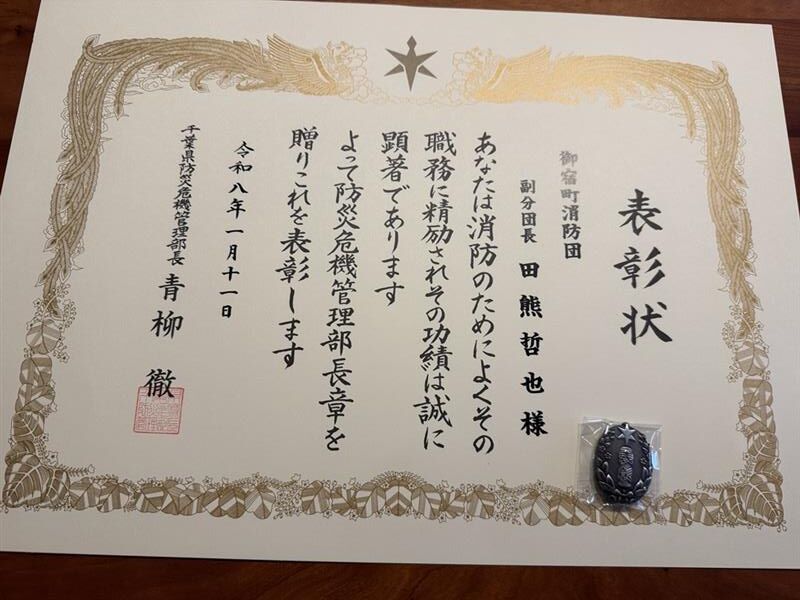 表彰状
御宿町消防団
副分団長 田熊哲也様
あなたは消防のためによくその
職務に精励されその功績は誠に
顕著であります
よって防災危機管理部長章を
贈りこれを表彰します
令和八年一月十一日
千葉県防災危機管理部長 青柳徹